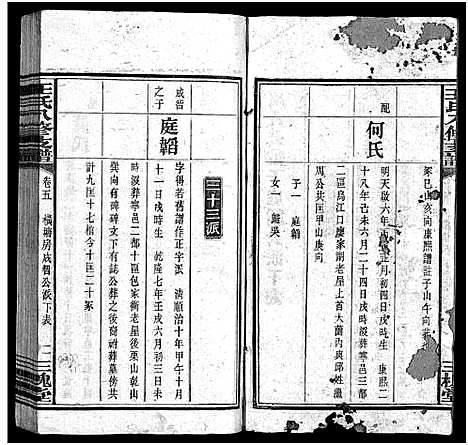 王氏八修支譜
三槐堂
冢巳山亥向康熙譜註子山午向
配
何氏
明天啟六年丙寅正初四日戌時生 康熙二
十八年己未六月二十四日戌時歿葬寧邑三都
二區烏江口廖家湖老屋上首大蘭內與邱姓
周公共匡甲山庚向
子一 庭韜
女一 適吳
三十三派
成晉
之子
庭韜
字得若舊譜作正字派 清順治十年甲午十月
十一日戌時生 乾隆七年壬戌六月初三日未
時歿葬寧邑二都十區包家衝老屋後栗山乾山
巽向有碑碑文下有誌公葬之後裔祔葬墓傍共
計九匡十七棺今十匡二十冢
王氏八修支譜
卷五
橫塘房成個公派下表
一二
三槐堂